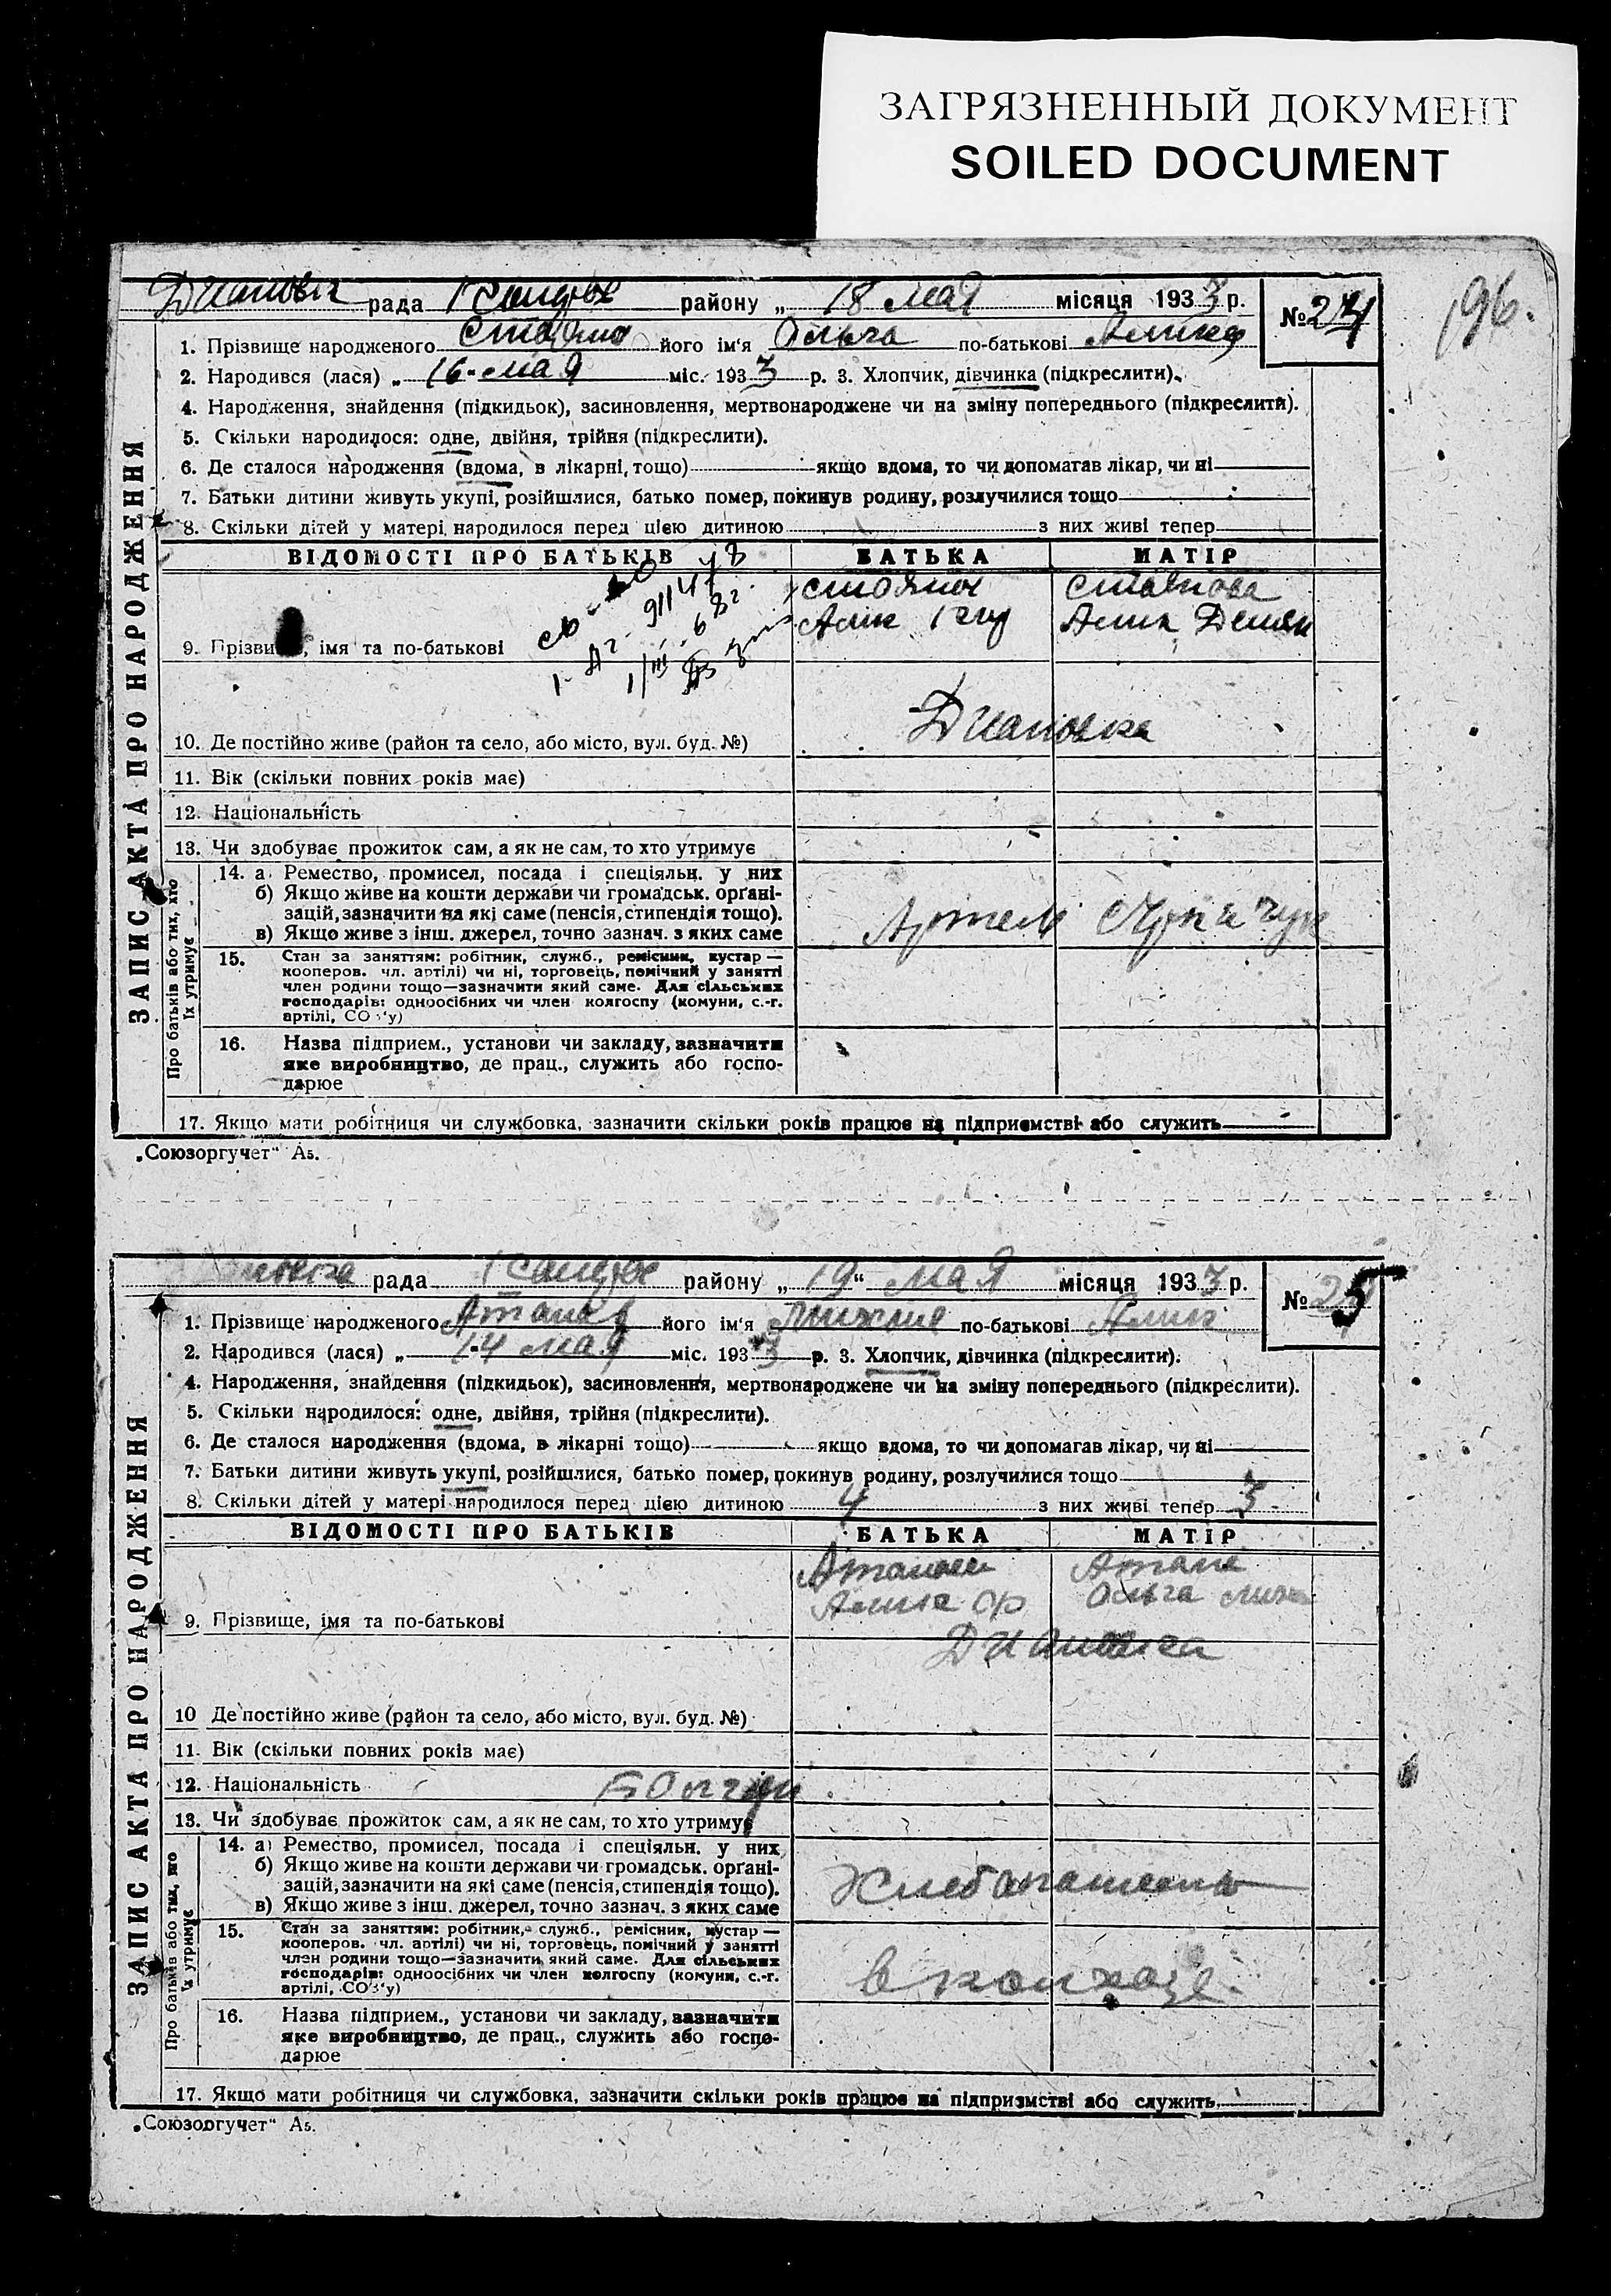 ЗАГРЯЗНЕННЫЙ ДОКУМЕНТ
SOILED DOCUMENT
196.
рада району „ 18 мая місяця 1933 р. № 24
1. Прізвище народженого його ім'я Ольга по-батькові
2. Народився (лася) „ 16 мая міс. 1933 р. 3. Хлопчик, дівчинка (підкреслити).
4. Народження, знайдення (підкидьок), засиновлення, мертвонароджене чи на зміну попереднього (підкреслити).
5. Скільки народилося: одне, двійня, трійня (підкреслити).
6. Де сталося народження (вдома, в лікарні, тощо) якщо вдома, то чи допомагав лікар, чи ні
7. Батьки дитини живуть укупі, розійшлися, батько помер, покинув родину, розлучилися тощо
8. Скільки дітей у матері народилося перед цією дитиною з них живі тепер
ЗАПИС АКТА ПРО НАРОДЖЕННЯ
ВІДОМОСТІ ПРО БАТЬКІВ БАТЬКА МАТІР
9. Прізвище, імя та по-батькові
Диановка
10. Де постійно живе (район та село, або місто, вул. буд. №)
11. Вік (скільки повних років має)
12. Національність
13. Чи здобуває прожиток сам, а як не сам, то хто утримує
Про батьків або тих, хто їх утримує
14. а) Ремество, промисел, посада і спеціяльн. у них
б) Якщо живе на кошти держави чи громадськ. орґані-
зацій, зазначити на які саме (пенсія, стипендія тощо).
в) Якщо живе з інш. джерел, точно зазнач. з яких саме
Артель
15. Стан за заняттям: робітник, служб., ремісник, кустар —
кооперов. чл. артілі) чи ні, торговець, помічний у занятті
член родини тощо—зазначити який саме. Для сільських
господарів: одноосібних чи член колгоспу (комуни, с.-г.
артілі, СОЗ'у)
16. Назва підприєм., установи чи закладу, зазначити
яке виробництво, де прац., служить або госпо-
дарює
17. Якщо мати робітниця чи службовка, зазначити скільки років працює на підприємстві або служить
„Союзоргучет" А5.
рада району „ 19 " мая місяця 1933 р. № 25
1. Прізвище народженого його ім'я по-батькові
2. Народився (лася) „ 14 мая міс. 1933 р. 3. Хлопчик, дівчинка (підкреслити).
4. Народження, знайдення (підкидьок), засиновлення, мертвонароджене чи на зміну попереднього (підкреслити).
5. Скільки народилося: одне, двійня, трійня (підкреслити).
6. Де сталося народження (вдома, в лікарні тощо) якщо вдома, то чи допомагав лікар, чи ні
7. Батьки дитини живуть укупі, розійшлися, батько помер, покинув родину, розлучилися тощо
8. Скільки дітей у матері народилося перед цією дитиною 4 з них живі тепер 3
ЗАПИС АКТА ПРО НАРОДЖЕННЯ
ВІДОМОСТІ ПРО БАТЬКІВ БАТЬКА МАТІР
Ольга
9. Прізвище, імя та по-батькові
Диановка
10 Де постійно живе (район та село, або місто, вул. буд. №)
11. Вік (скільки повних років має)
12. Національність
13. Чи здобуває прожиток сам, а як не сам, то хто утримує
Про батьків або тих, хто їх утримує
14. а) Ремество, промисел, посада і спеціяльн. у них
б) Якщо живе на кошти держави чи громадськ. орґані-
зацій, зазначити на які саме (пенсія, стипендія тощо).
в) Якщо живе з інш. джерел, точно зазнач. з яких саме
15. Стан за заняттям: робітник, служб., ремісник, кустар —
кооперов. чл. артілі) чи ні, торговець, помічний у занятті
член родини тощо—зазначити який саме. Для сільських
господарів: одноосібних чи член колгоспу (комуни, с.-г.
артілі, СОЗ'у)
в колхозе
16. Назва підприєм., установи чи закладу, зазначити
яке виробництво, де прац., служить або госпо-
дарює
17. Якщо мати робітниця чи службовка, зазначити скільки років працює на підприємстві або служить
„Союзоргучет" А5.